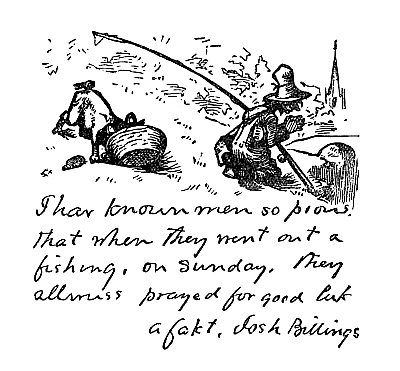 I hav known men so pious,
that when they went out a
fishing, on Sunday, they
allwuss prayed for good luk
a fakt, Josh Billings